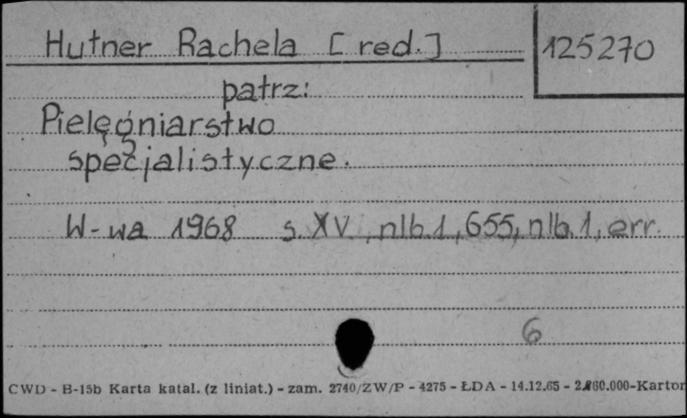 Hutner Rachela [red.]
125270
patrz:
Pielęgniarstwo
specjalistyczne.
W-wa 1968 s. XV, nlb.1, 655, nlb.1, err.
6
CWD - B-15b Karta katal. (z liniat.) - zam. 2740/ZW/P - 4275 - ŁDA - 14.12.65 - 2.860.000-Karton